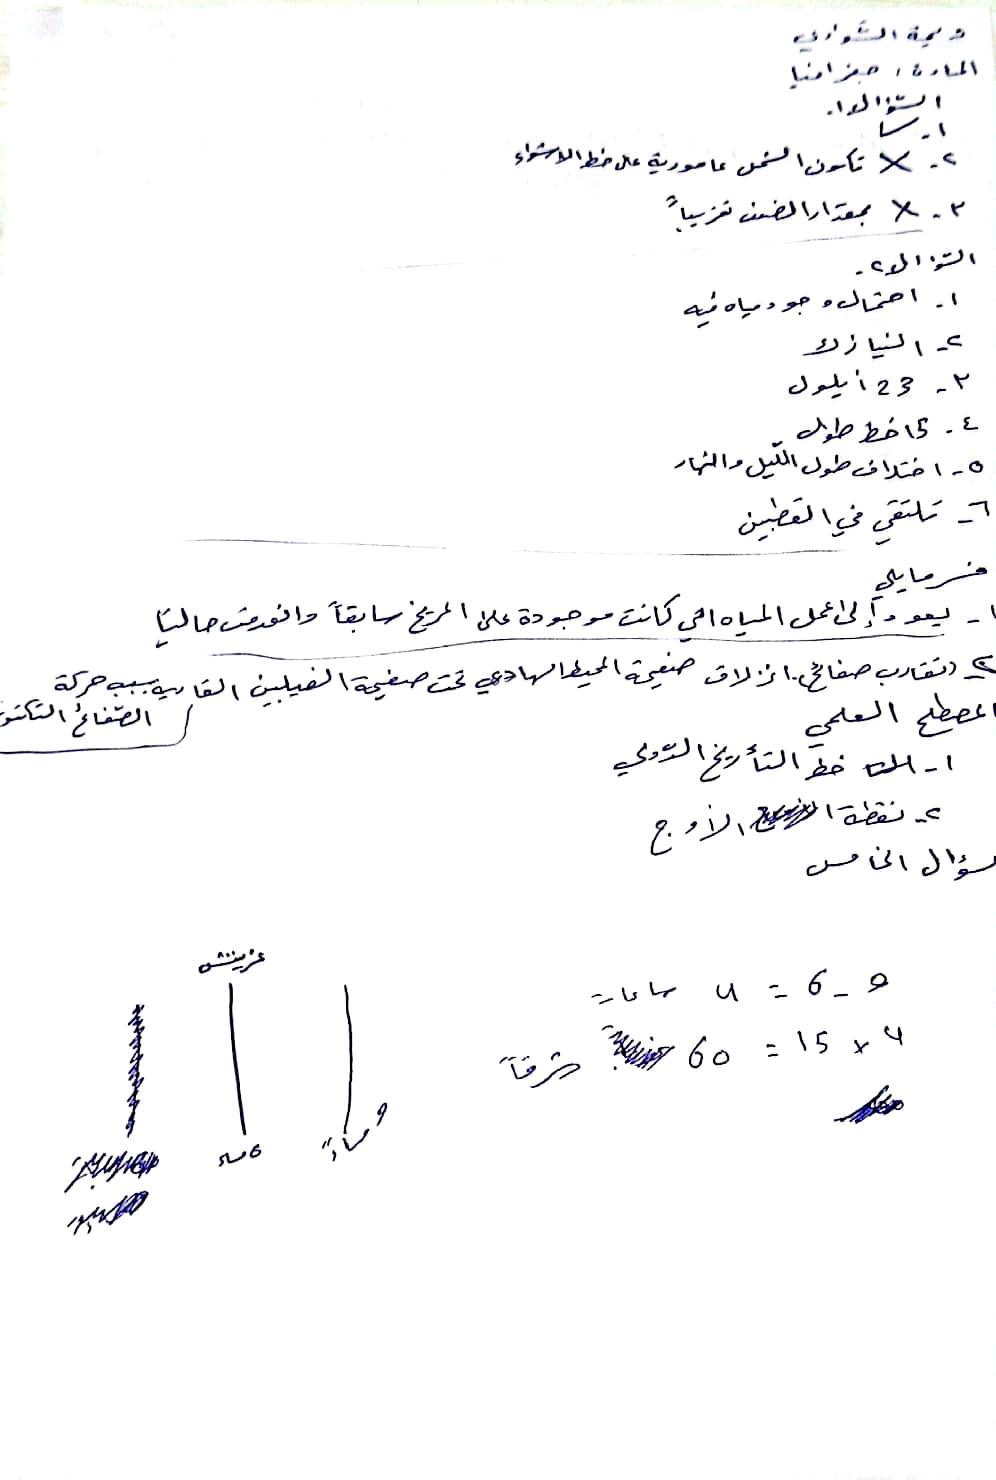 ديمة الشوا في
المادة: جغرافيا
السّؤال ١.
١- صـ
٢- X تكون الشمس عامودية على خط الاستواء
٣- X بمقدار الضعف تقريباً
السّؤال ٢.
١- احتمال وجود مياه فيه
٢- النيازك
٣- 23 أيلول
٤- 15 خط طول
٥- اختلاف طول اللّيل والنهار
٦- تلتقي في القطبين
فسر مايلي
١- يعود إلى عمل المياه التي كانت موجودة على المريخ سابقاً وانعدمت حالياً
٢- (تقارب صفائح). انزلاق صفيحة المحيط الهادي تحت صفيحة الفيليبين القارية بسبب حركة
الصّفائح التكتو
المصطلح العلمي
١- خط التأريخ الدّولي
٢- نقطة الأوج
سؤال الخامس
غرينتش
9 - 6 = 4 ساعات
4 × 15 = 60 شرقاً
6 مساء
9 مساءً